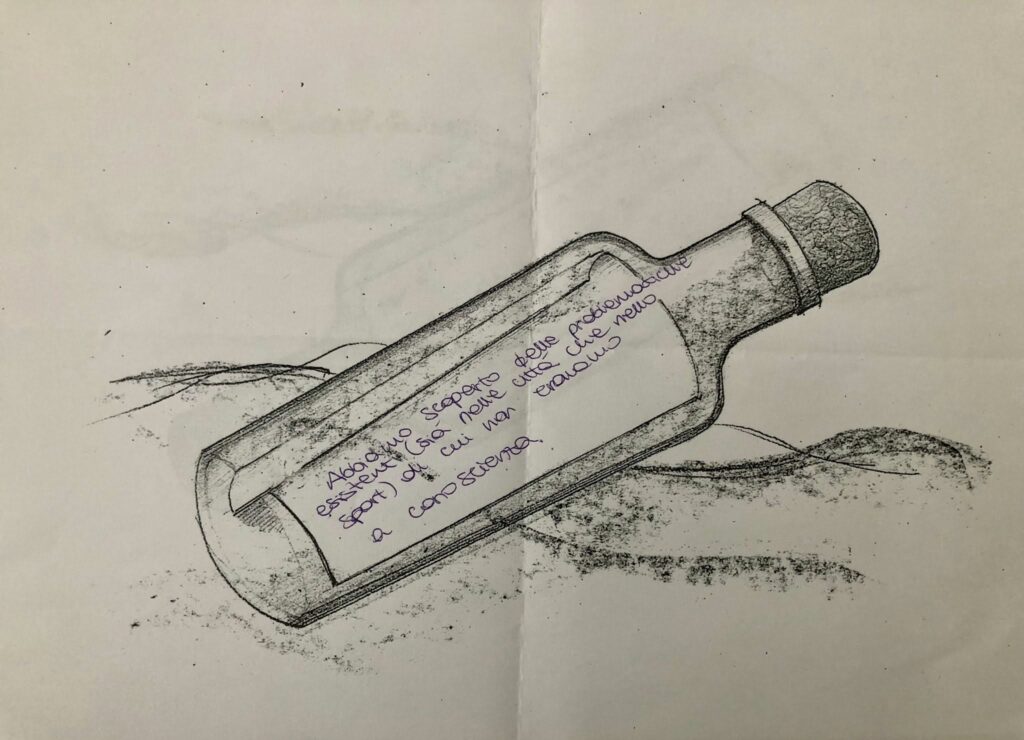 Abbiamo scoperto delle problematiche
esistenti (sia nelle città che nello
sport) di cui non eravamo
a conoscienza.